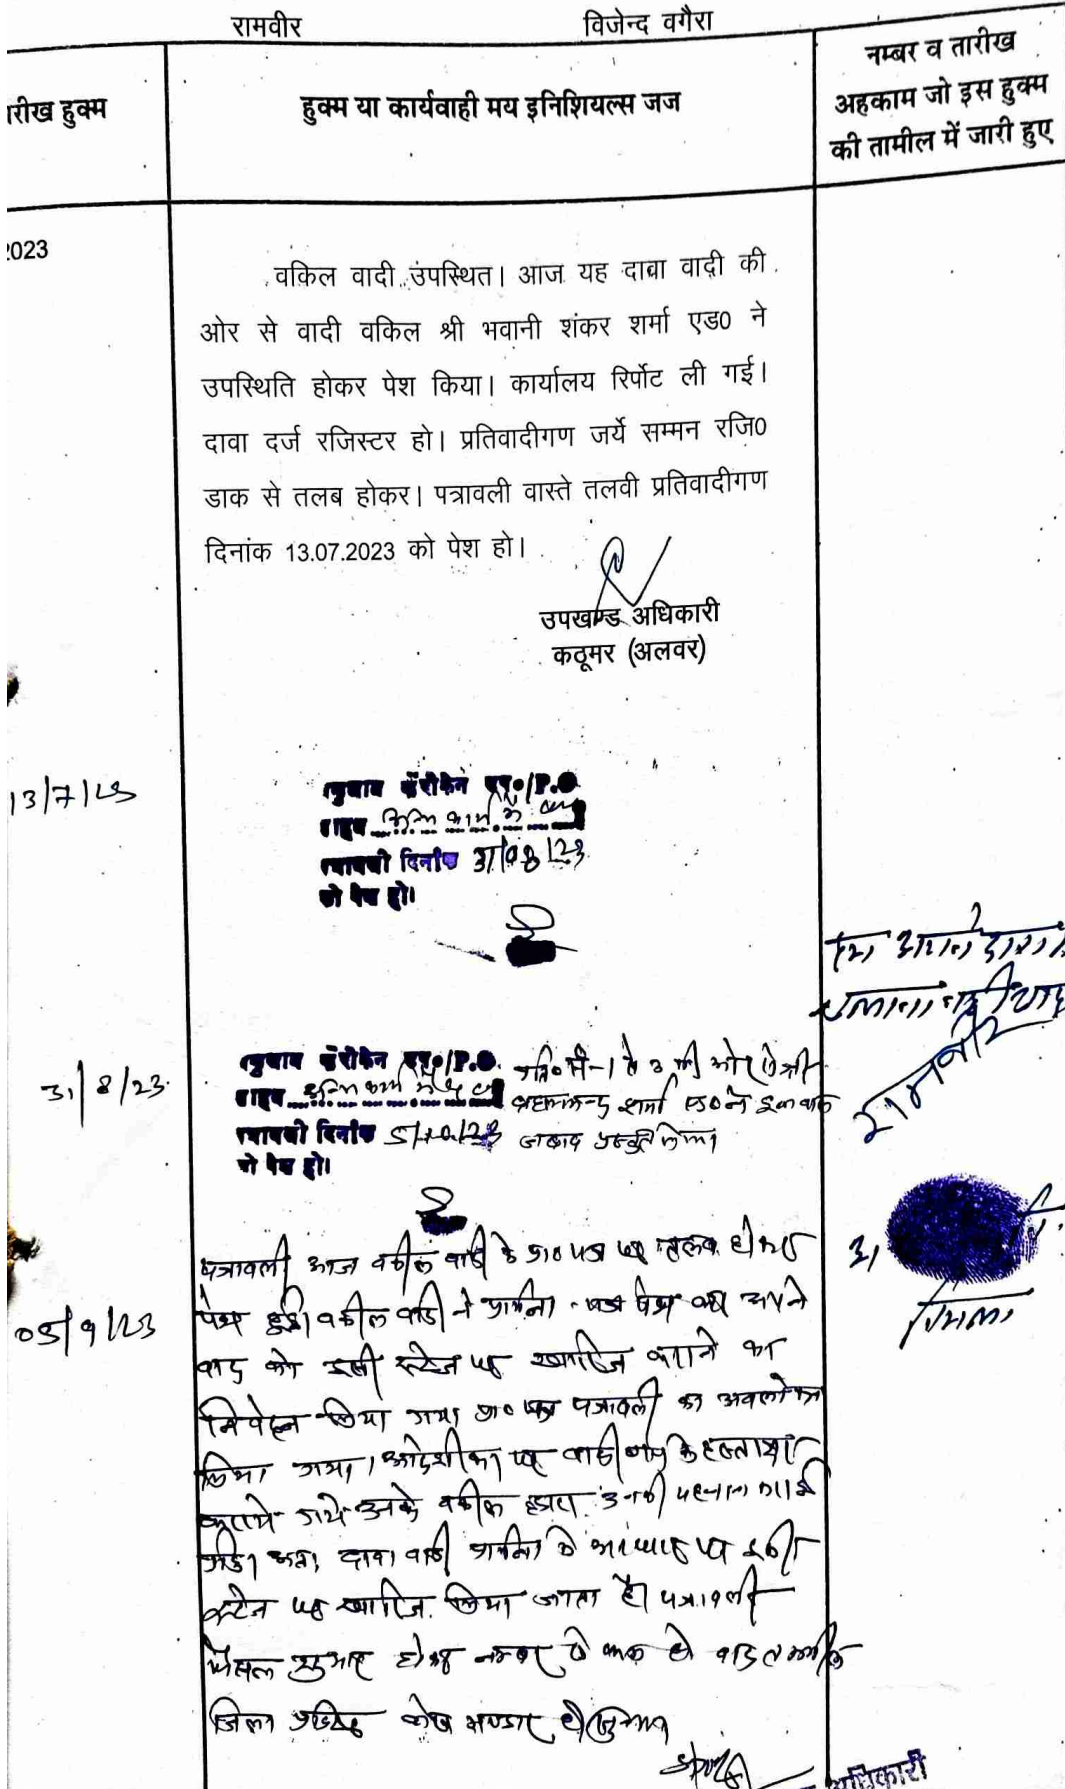 रामवीर विजेन्द वगैरा
तारीख हुक्म
हुक्म या कार्यवाही मय इनिशियल्स जज
नम्बर व तारीख
अहकाम जो इस हुक्म
की तामील में जारी हुए
2023
वकिल वादी उपस्थित। आज यह दावा वादी की
ओर से वादी वकिल श्री भवानी शंकर शर्मा एड0 ने
उपस्थिति होकर पेश किया। कार्यालय रिर्पोट ली गई।
दावा दर्ज रजिस्टर हो। प्रतिवादीगण जर्ये सम्मन रजि0
डाक से तलब होकर। पत्रावली वास्ते तलवी प्रतिवादीगण
दिनांक 13.07.2023 को पेश हो।
उपखण्ड अधिकारी
कठूमर (अलवर)
13/7/23
दिनांक 31/08/23
को पेश हो।
31/8/23
दिनांक 5/10/23
को पेश हो।
जबाव प्रस्तुत किया
हम अपने दावा
चलाना नही चाह
रामवीर
05/9/23
पत्रावली आज वकील वादी के प्रा० पत्र पर तलब होकर
पेश हुई। वकील वादी ने प्रार्थना पत्र पेश कर अपने
वाद को इसी स्टेज पर खारिज कराने का
निवेदन किया गया। प्रा० पत्र पत्रावली का अवलोकन
किया गया। आदेशीका पर वादी के हस्ताक्षर
कराये गये उनके वकील द्वारा उनकी पहचान
गई। अतः दावा वादी प्रार्थना के आधार पर इसी
स्टेज पर खारिज किया जाता है। पत्रावली
फैसल शुमार होकर नम्बर से कम हो
जिला अभिलेख
अधिकारी